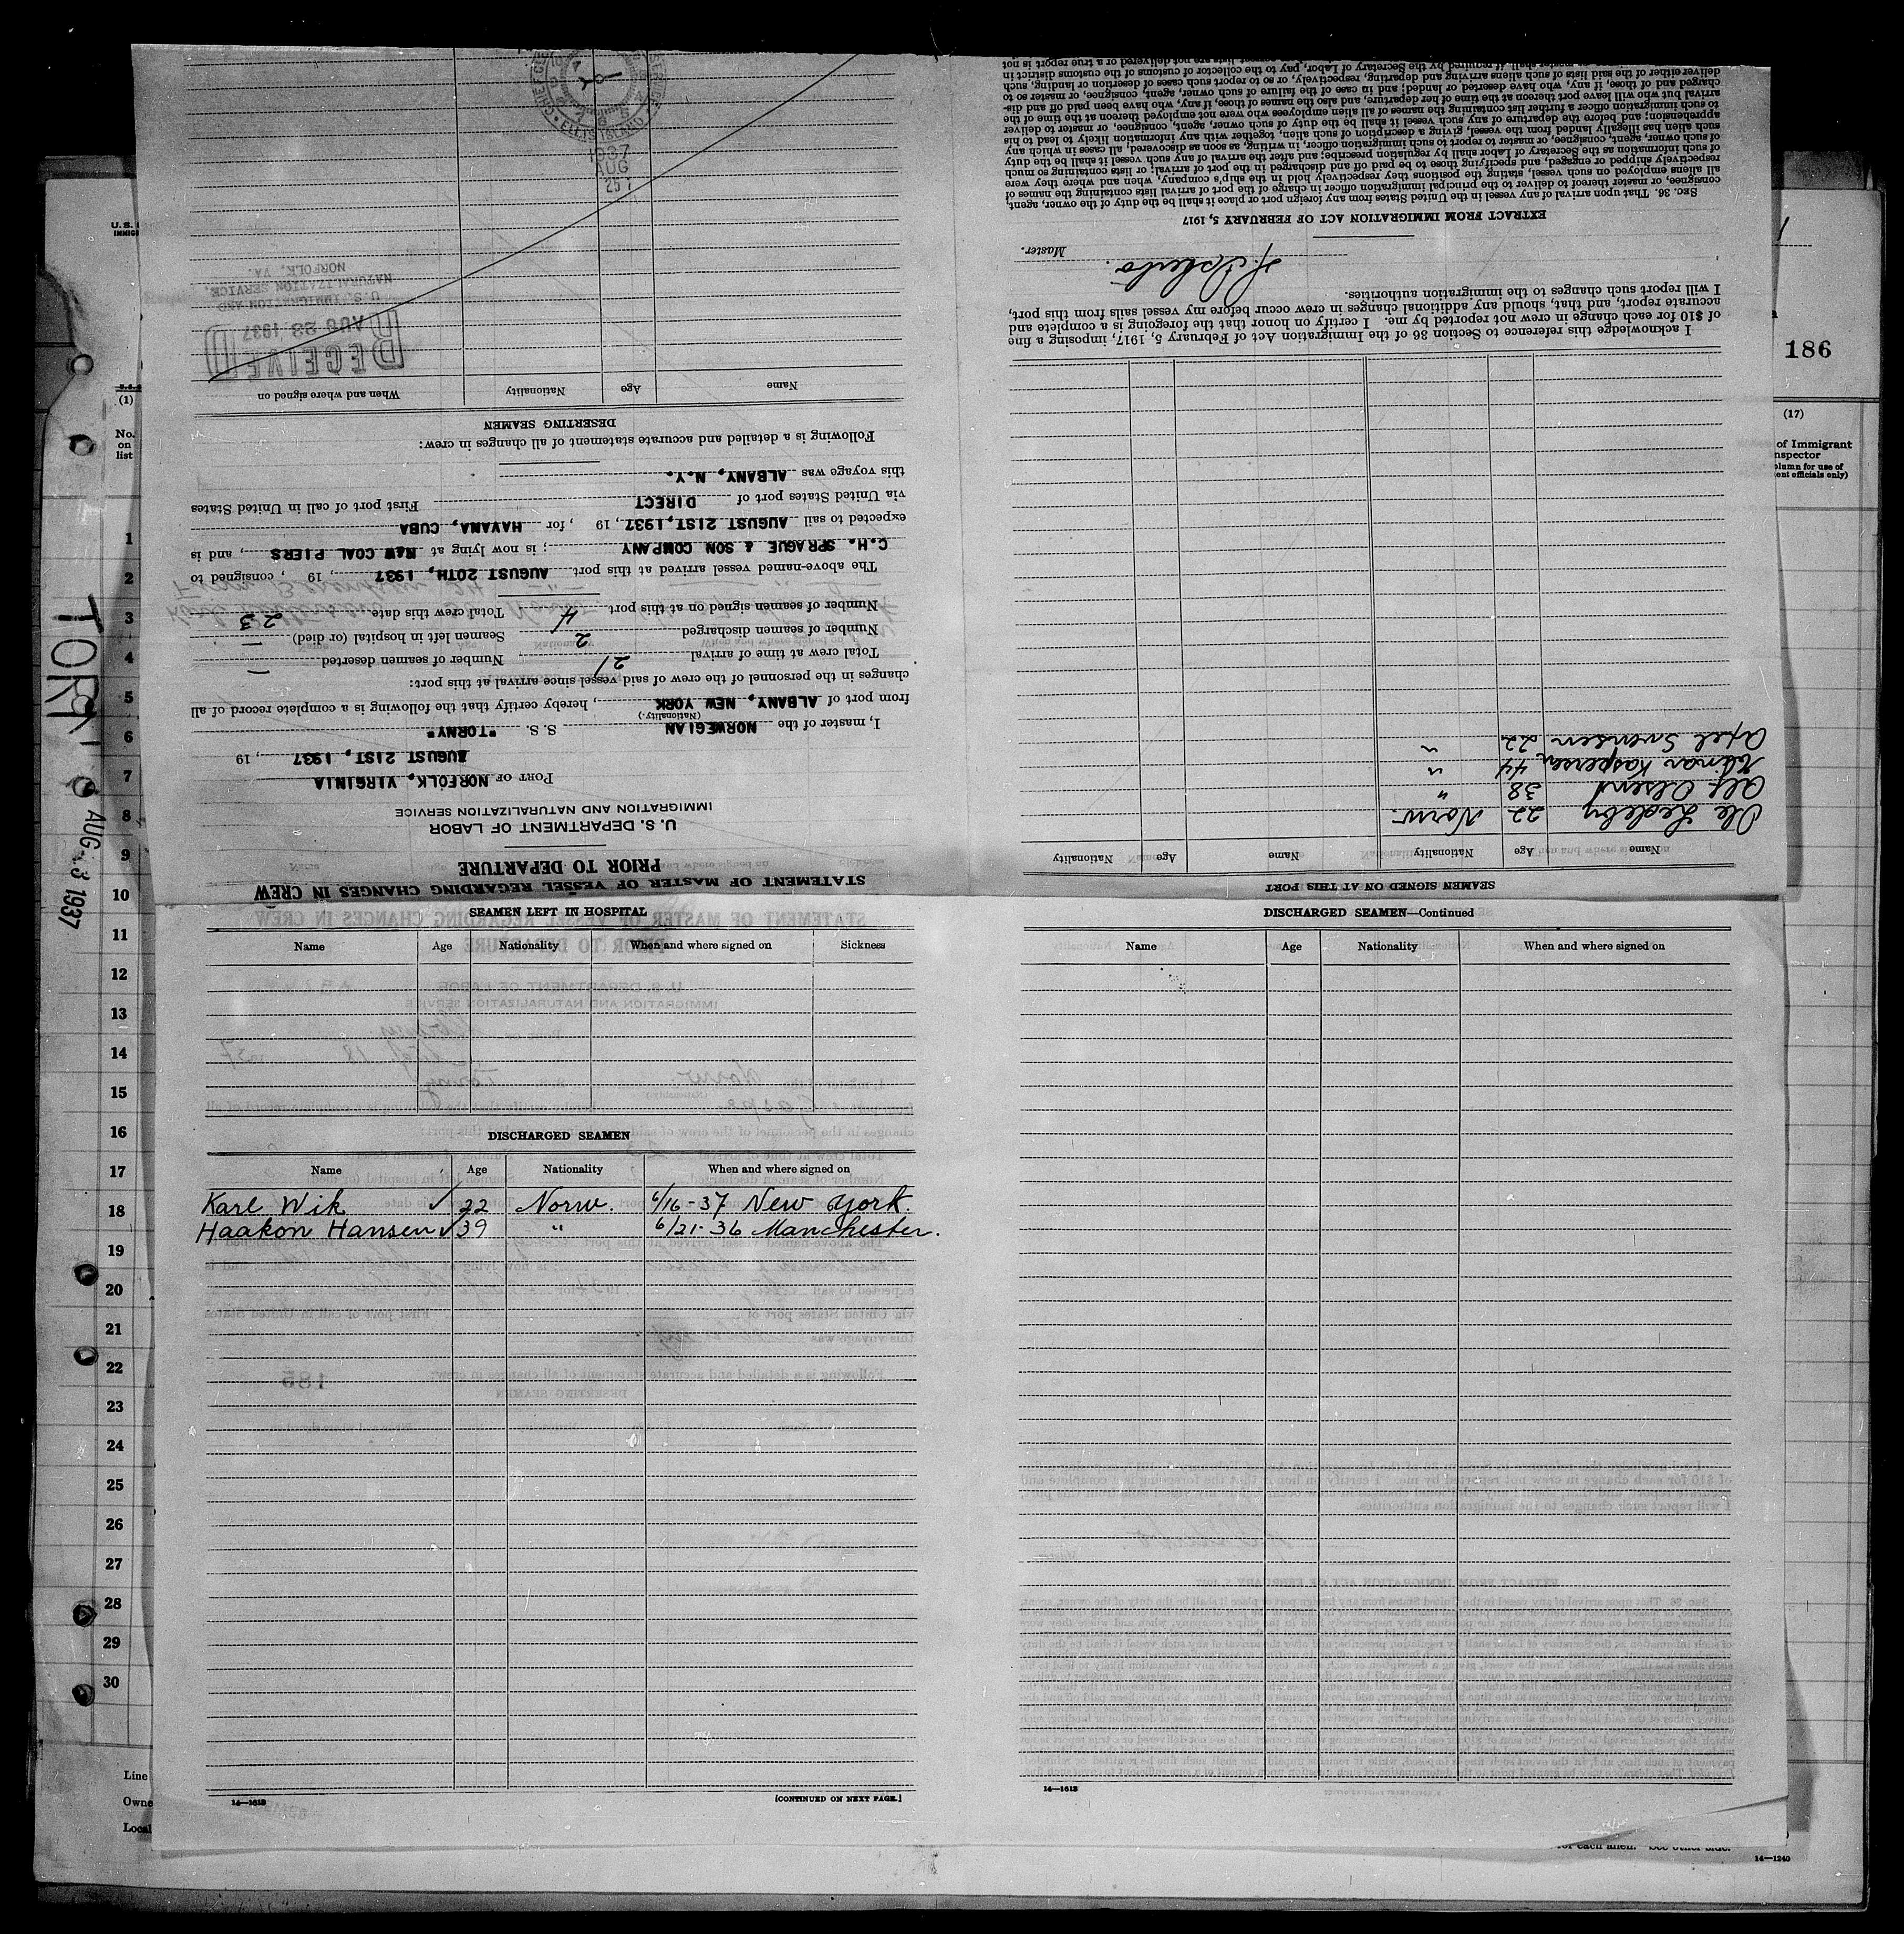 STATEMENT OF MASTER OF VESSEL REGARDING CHANGES IN CREW
PRIOR TO DEPARTURE
U. S. DEPARTMENT OF LABOR
IMMIGRATION AND NATURALIZATION SERVICE
PORT OF NORFOLK, VIRGINIA
AUGUST 21ST, 1937, 19
I, master of the NORWEGIAN S. S. "TORNY"
(Nationality.)
from port of ALBANY, NEW YORK, hereby certify that the following is a complete record of all
changes in the personnel of the crew of said vessel since arrival at this port:
Total crew at time of arrival 21 Number of seamen deserted —
Number of seamen discharged 2 Seamen left in hospital (or died) —
Number of seamen signed on at this port 4 Total crew this date 23
The above-named vessel arrived at this port AUGUST 20TH, 1937, 19 , consigned to
C.H. SPRAGUE & SON COMPANY ; is now lying at N&W COAL PIERS, and is
expected to sail AUGUST 21ST, 1937, 19 , for HAVANA, CUBA
via United States port of DIRECT First port of call in United States
this voyage was ALBANY, N.Y.
Following is a detailed and accurate statement of all changes in crew:
DESERTING SEAMEN
Name Age Nationality When and where signed on
RECEIVED
AUG 23 1937
U.S. IMMIGRATION AND
NATURALIZATION SERVICE.
NORFOLK, VA.
25
AUG
1937
ELLIS ISLAND
SEAMEN SIGNED ON AT THIS PORT
Name Age Nationality Name Age Nationality
Ole Ledeby 22 Norw.
Alf Olsen 38 "
Hilmar Kaspersen 44 "
Axel Svensen 22 "
I acknowledge this reference to Section 36 of the Immigration Act of February 5, 1917, imposing a fine
of $10 for each change in crew not reported by me. I certify on honor that the foregoing is a complete and
accurate report, and that, should any additional changes in crew occur before my vessel sails from this port,
I will report such changes to the immigration authorities.
Master.
EXTRACT FROM IMMIGRATION ACT OF FEBRUARY 5, 1917
SEC. 36. That upon arrival of any vessel in the United States from any foreign port or place it shall be the duty of the owner, agent,
consignee, or master thereof to deliver to the principal immigration officer in charge of the port of arrival lists containing the names of
all aliens employed on such vessel, stating the positions they respectively hold in the ship's company, when and where they were
respectively shipped or engaged, and specifying those to be paid off and discharged in the port of arrival; or lists containing so much
of such information as the Secretary of Labor shall by regulation prescribe; and after the arrival of any such vessel it shall be the duty
of such owner, agent, consignee, or master to report to such immigration officer, in writing, as soon as discovered, all cases in which any
such alien has illegally landed from the vessel, giving a description of such alien, together with any information likely to lead to his
apprehension; and before the departure of any such vessel it shall be the duty of such owner, agent, consignee, or master to deliver
to such immigration officer a further list containing the names of all alien employees who were not employed thereon at the time of the
arrival but who will leave port thereon at the time of her departure, and also the names of those, if any, who have been paid off and dis-
charged and of those, if any, who have deserted or landed; and in case of the failure of such owner, agent, consignee, or master so to
deliver either of the said lists of such aliens arriving and departing, respectively, or so to report such cases of desertion or landing, such
master shall, if required by the Secretary of Labor, pay to the collector of customs of the customs district in
lists are not delivered or a true report is not
SEAMEN LEFT IN HOSPITAL
Name Age Nationality When and where signed on Sickness
DISCHARGED SEAMEN
Name Age Nationality When and where signed on
Karl Wik 22 Norw. 6/16-37 New York.
Haakon Hansen 39 " 6/21-36 Manchester.
14—1613
[CONTINUED ON NEXT PAGE.]
DISCHARGED SEAMEN—Continued
Name Age Nationality When and where signed on
14—1613
U. S.
(1)
No.
on
list
1
2
3
4
5
6
7
8
9
10
11
12
13
14
15
16
17
18
19
20
21
22
23
24
25
26
27
28
29
30
Line
Owne
Local
AUG 1937
186
(17)
of Immigrant
nspector
olumn for use of
ent officials only)
for each alien. See other side.
14—1240